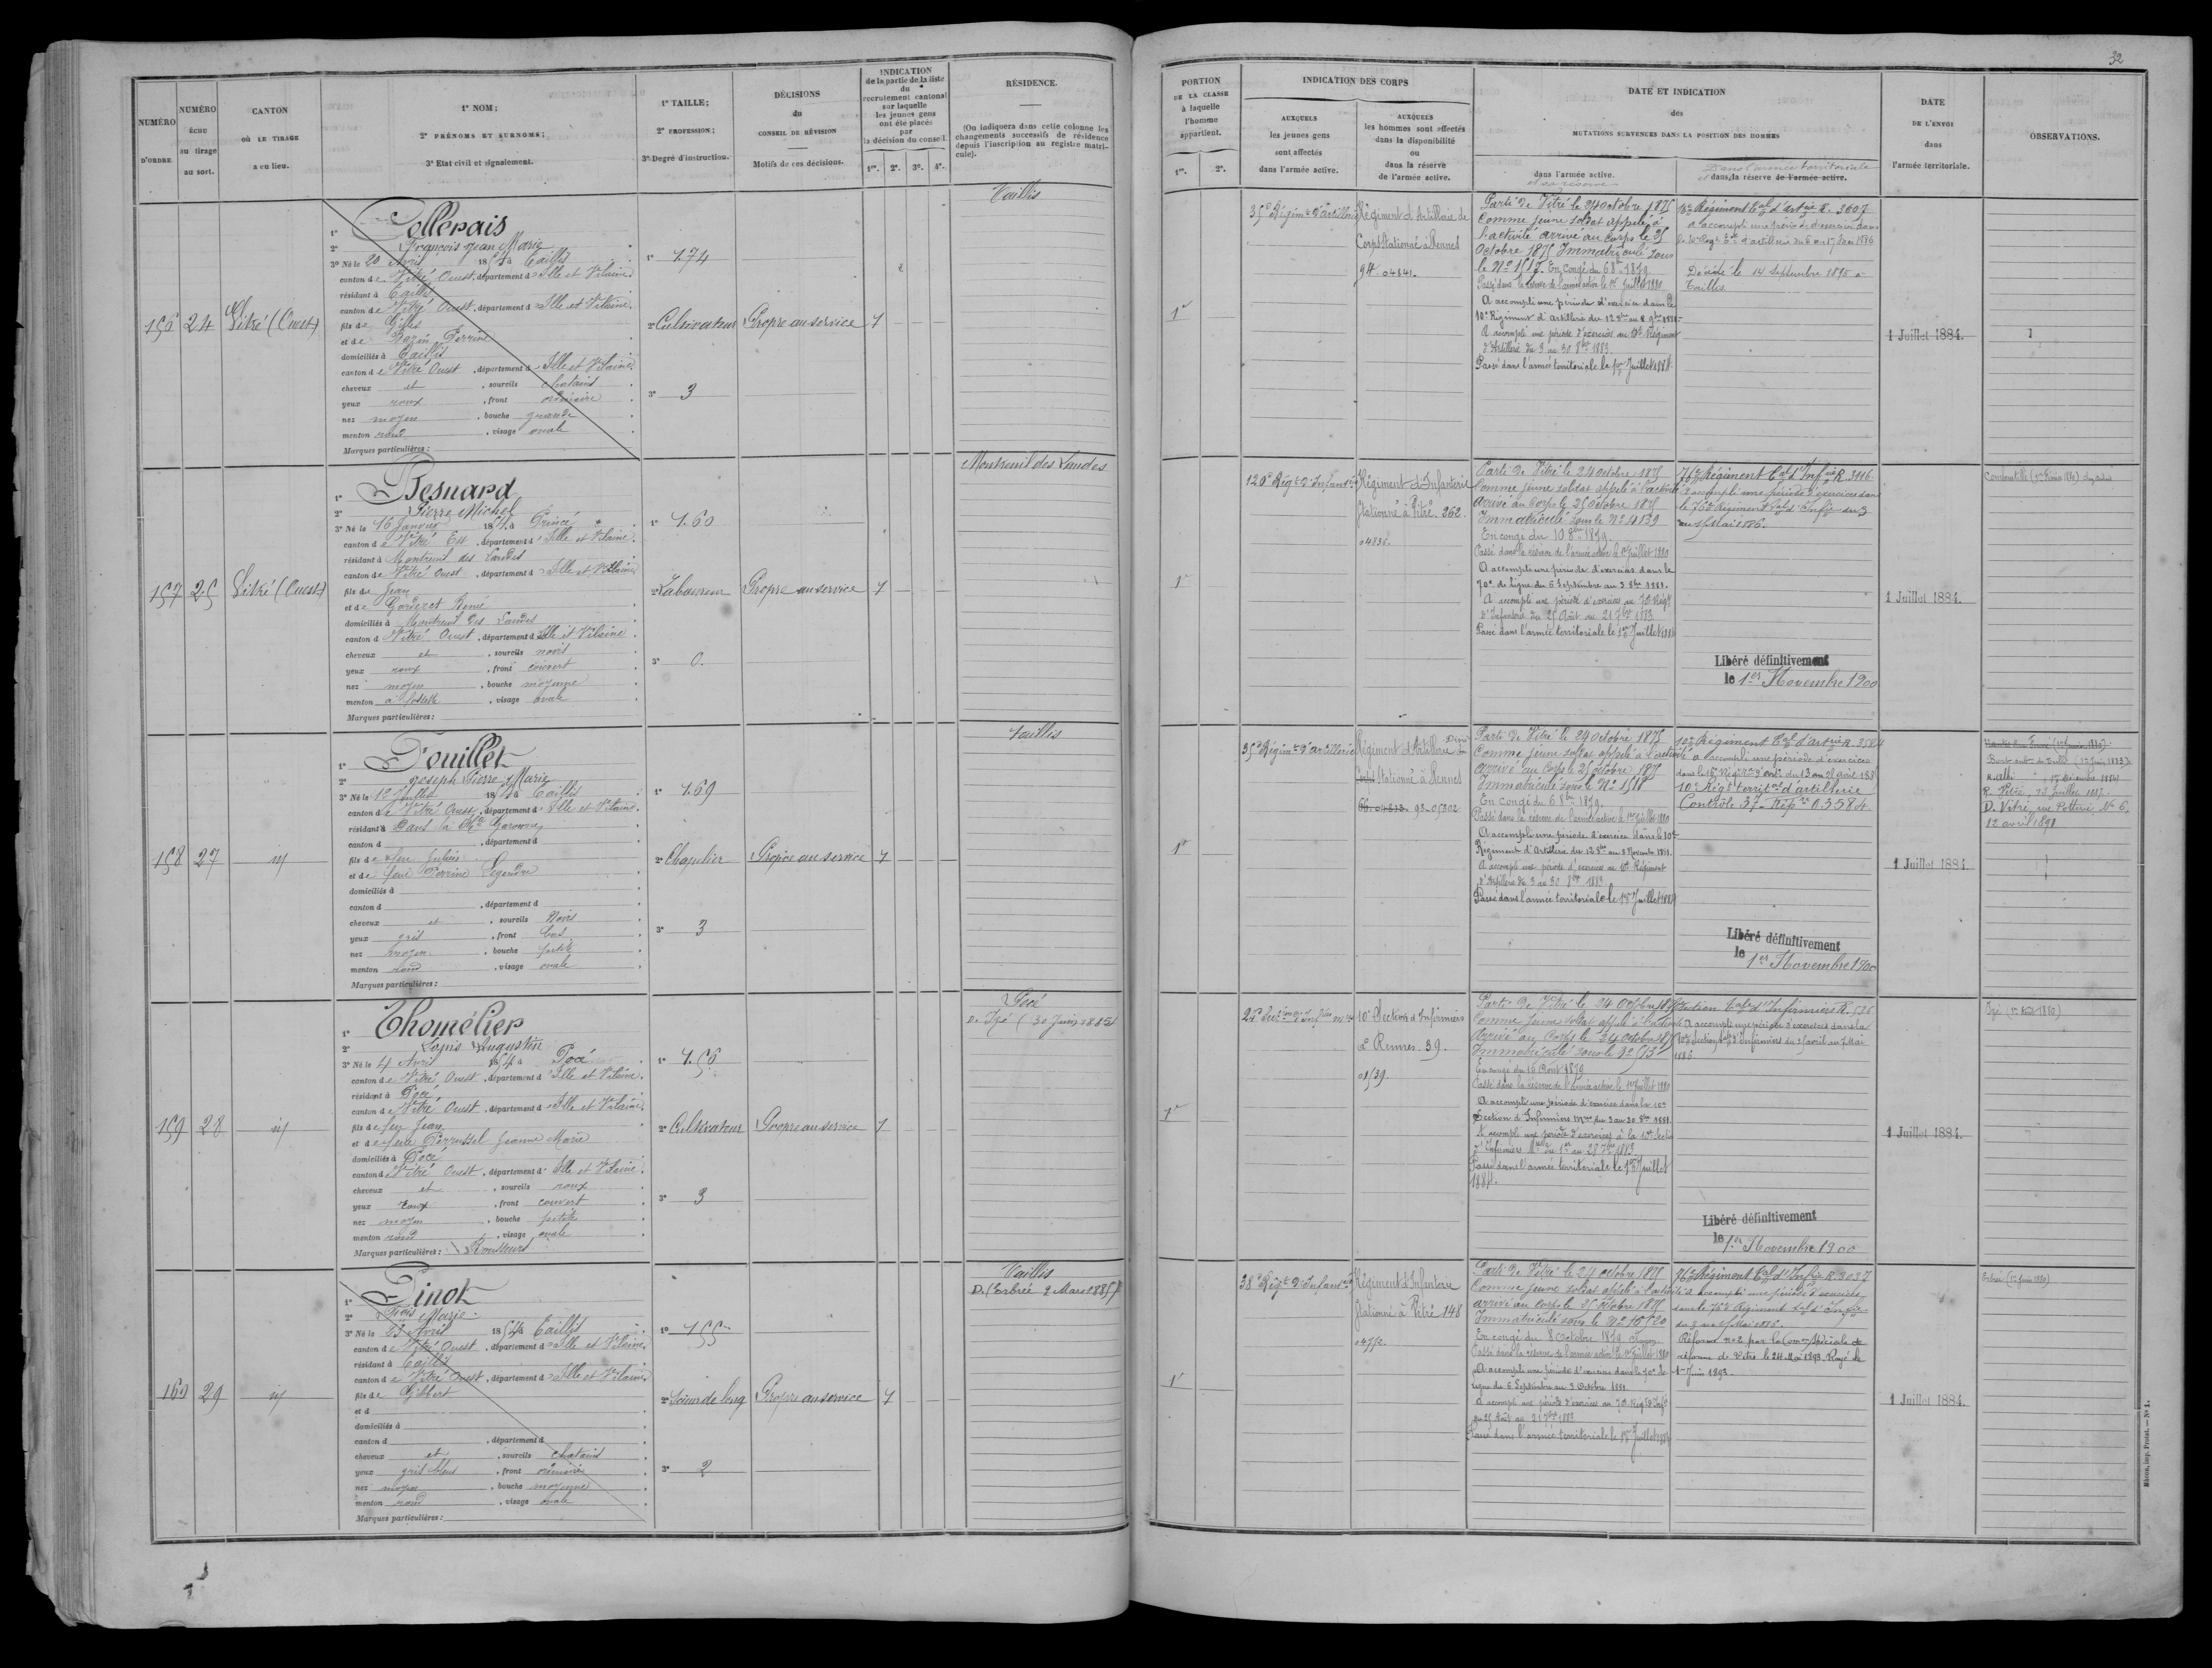 32
NUMÉRO D'ORDRE.
NUMÉRO échu au tirage au sort.
CANTON OÙ LE TIRAGE a eu lieu.
1° NOM;
2° PRÉNOMS ET SURNOMS;
3° Etat civil et signalement.
1° TAILLE;
2° PROFESSION;
3° Degré d'instruction.
DÉCISIONS
du
CONSEIL DE RÉVISION
Motifs de ces décisions.
INDICATION
de la partie de la liste
du
recrutement cantonal
sur laquelle
les jeunes gens
ont été placés
par
la décision du conseil
1re. 2e. 3e. 4e.
RÉSIDENCE.
(On indiquera dans cette colonne les
changements successifs de résidence
depuis l'inscription au registre matri-
cule).
PORTION
DE LA CLASSE
à laquelle
l'homme
appartient.
1re. 2e.
INDICATION DES CORPS
AUXQUELS
les jeunes gens
sont affectés
dans l'armée active.
AUXQUELS
les hommes sont affectés
dans la disponibilité
ou
dans la réserve
de l'armée active.
DATE ET INDICATION
des
MUTATIONS SURVENUES DANS LA POSITION DES HOMMES
dans l'armée active.
et sa réserve
Dans l'armée territoriale
et dans sa réserve de l'armée active.
DATE
DE L'ENVOI
dans
l'armée territoriale.
OBSERVATIONS.
156 24 Vitré (Ouest)
1° Collerais
2° François Jean Marie
3° Né le 20 Avril 1854 à Taillis
canton de Vitré Ouest, département d'Ille et Vilaine
résidant à Taillis
canton de Vitré Ouest, département d'Ille et Vilaine
fils de Gilles
et de Perrine
domiciliés à Taillis
canton de Vitré Ouest, département d'Ille et Vilaine
cheveux et, sourcils chatains
yeux roux, front ordinaire
nez moyen, bouche grande
menton rond, visage ovale
Marques particulières:
1° 1.74
2° Cultivateur
3° 3
Propre au service 1
Taillis
1re
35e Régimt d'artillerie
Régiment d'Artillerie de
Corps Stationné à Rennes
94. 04841.
Parti de Vitré le 24 octobre 1875
Comme jeune soldat appelé à
l'activité arrivé au Corps le 25
Octobre 1875 Immatriculé sous
le No 1517. En congé du 6 8bre 1879
Passé dans la réserve de l'armée active le 1er Juillet 1880
A accompli une période d'exercices dans le
10e Régiment d'Artillerie du 12 8bre au 8 9bre 1881.
A accompli une période d'exercices au 10e Régiment
d'Artillerie du 3 au 30 8bre 1883.
Passé dans l'armée territoriale le 1er Juillet 1884.
10e Régiment tal d'artrie R. 3607
A accompli une période d'exercices dans
Décédé le 14 Septembre 1895 à
Taillis
1 Juillet 1884.
157 25 Vitré (Ouest)
1° Besnard
2° Pierre Michel
3° Né le 16 Janvier 1854 à Princé
canton de Vitré Est, département d'Ille et Vilaine
résidant à Montreuil des Landes
canton de Vitré Ouest, département d'Ille et Vilaine
fils de Jean
et de Renée
domiciliés à Montreuil des Landes
canton de Vitré Ouest, département d'Ille et Vilaine
cheveux et, sourcils noirs
yeux roux, front couvert
nez moyen, bouche moyenne
menton à fossette, visage ovale
Marques particulières:
1° 1.60
2° Laboureur
3° 0.
Propre au service 1
Montreuil des Landes
1re
120e Régt d'Infanterie
Régiment d'Infanterie
Stationné à Vitré. 262.
04836.
Parti de Vitré le 24 octobre 1875
Comme jeune soldat appelé à l'activité
Arrivé au Corps le 25 octobre 1875
Immatriculé sous le No 4139
En congé du 10 8bre 1879.
Passé dans la réserve de l'armée active le 1er Juillet 1880
A accompli une période d'exercices dans le
70e de ligne du 6 Septembre au 3 8bre 1881.
A accompli une période d'exercices au 70e Régt
d'Infanterie du 25 Août au 21 7bre 1883
Passé dans l'armée territoriale le 1er Juillet 1884
76e Régiment tal d'Infrie R. 3116
A accompli une période d'exercices dans
le 76e Régiment tal d'Infrie du 3
au 15 Mai 1886.
Libéré définitivement
le 1er Novembre 1900
1 Juillet 1884.
158 27 id
1° Fouillet
2° Joseph Pierre Marie
3° Né le 12 Juillet 1854 à Taillis
canton de Vitré Ouest, département d'Ille et Vilaine
résidant à Dans la Hte Garonne
canton d , département d
fils de feu Julien
et de feue Perrine Legendre
domiciliés à
canton d , département d
cheveux et, sourcils Noirs
yeux gris, front bas
nez moyen, bouche petite
menton rond, visage ovale
Marques particulières:
1° 1.69
2° Chapelier
3° 3
Propre au service 1
Taillis
1re
35e Régimt d'artillerie
Régiment d'Artillerie
Corps Stationné à Rennes
93-05302
Parti de Vitré le 24 octobre 1875
Comme jeune soldat appelé à l'activité
arrivé au Corps le 25 octobre 1875
Immatriculé sous le No 1518
En congé du 6 8bre 1879.
Passé dans la réserve de l'armée active le 1er Juillet 1880
A accompli une période d'exercices dans le 10e
Régiment d'Artillerie du 12 8bre au 8 Novembre 1881.
A accompli une période d'exercices au 10e Régiment
d'Artillerie du 3 au 30 8bre 1883
Passé dans l'armée territoriale le 1er Juillet 1884
10e Régiment tal d'artrie R. 3584
A accompli une période d'exercices
10e Régt territal d'artillerie
Contrôle 37- Répre 0.3584.
Libéré définitivement
le 1er Novembre 1900
1 Juillet 1884.
R. Vitré, 23 Juillet 1887.
D. Vitré, rue Poterie No 6,
12 avril 1891
159 28 id
1° Thomélier
2° Louis Augustin
3° Né le 4 Avril 1854 à Pocé
canton de Vitré Ouest, département d'Ille et Vilaine
résidant à Pocé
canton de Vitré Ouest, département d'Ille et Vilaine
fils de feu Jean
et de feue Perrussel Jeanne Marie
domiciliés à Pocé
canton de Vitré Ouest, département d'Ille et Vilaine
cheveux et, sourcils roux
yeux roux, front couvert
nez moyen, bouche petite
menton rond, visage ovale
Marques particulières: Rousseurs
1° 1.56
2° Cultivateur
3° 3
Propre au service 1
Pocé
D. Izé (30 Juin 1885)
1re
10e Section d'Infirmiers
à Rennes. 39.
01539.
Parti de Vitré le 24 Octobre 1875
Comme jeune soldat appelé à l'activité
Arrivé au Corps le 24 octobre 1875
En congé du 16 Août 1879
Passé dans la réserve de l'armée active le 1er Juillet 1880
A accompli une période d'exercices dans la 10e
Section d'Infirmiers Mres du 3 au 30 8bre 1881.
A accompli une période d'exercices à la 10e Section
Passé dans l'armée territoriale le 1er Juillet
1884.
A accompli une période d'exercices dans la
Libéré définitivement
le 1er Novembre 1900
1 Juillet 1884.
160 29 id
1° Pinot
2° Frois Marie
3° Né le 23 Avril 1854 à Taillis
canton de Vitré Ouest, département d'Ille et Vilaine
résidant à Taillis
canton de Vitré Ouest, département d'Ille et Vilaine
fils de Gilbert
et d
domiciliés à
canton d , département d
cheveux et, sourcils chatains
yeux gris bleus, front ordinaire
nez moyen, bouche moyenne
menton rond, visage ovale
Marques particulières:
1° 155
2° Scieur de long
3° 2
Propre au service 1
Taillis
D. Erbrée 2 Mars 1885
1re
38e Régt d'Infanterie
Régiment d'Infanterie
Stationné à Vitré 148
Parti de Vitré le 24 octobre 1875
Comme jeune soldat appelé à l'activité
arrivé au Corps le 25 octobre 1875
En congé du 8 Octobre 1879
Passé dans la réserve de l'armée active le 1er Juillet 1880
A accompli une période d'exercices dans le 70e de
ligne du 6 Septembre au 3 Octobre 1881.
A accompli une période d'exercices au 70e Régt d'Infie
du 25 Août au 21 7bre 1883
Passé dans l'armée territoriale le 1er Juillet 1884
76e Régiment tal d'Infrie R. 3037
A accompli une période d'exercices
dans le 76e Régiment tal d'Infie
Réformé no 2 par la Comon Spéciale de
réforme de Vitré le 24 Mai 1893. Rayé le
1er Juin 1893.
1 Juillet 1884.
Mâcon, imp. Protat. — No 1.